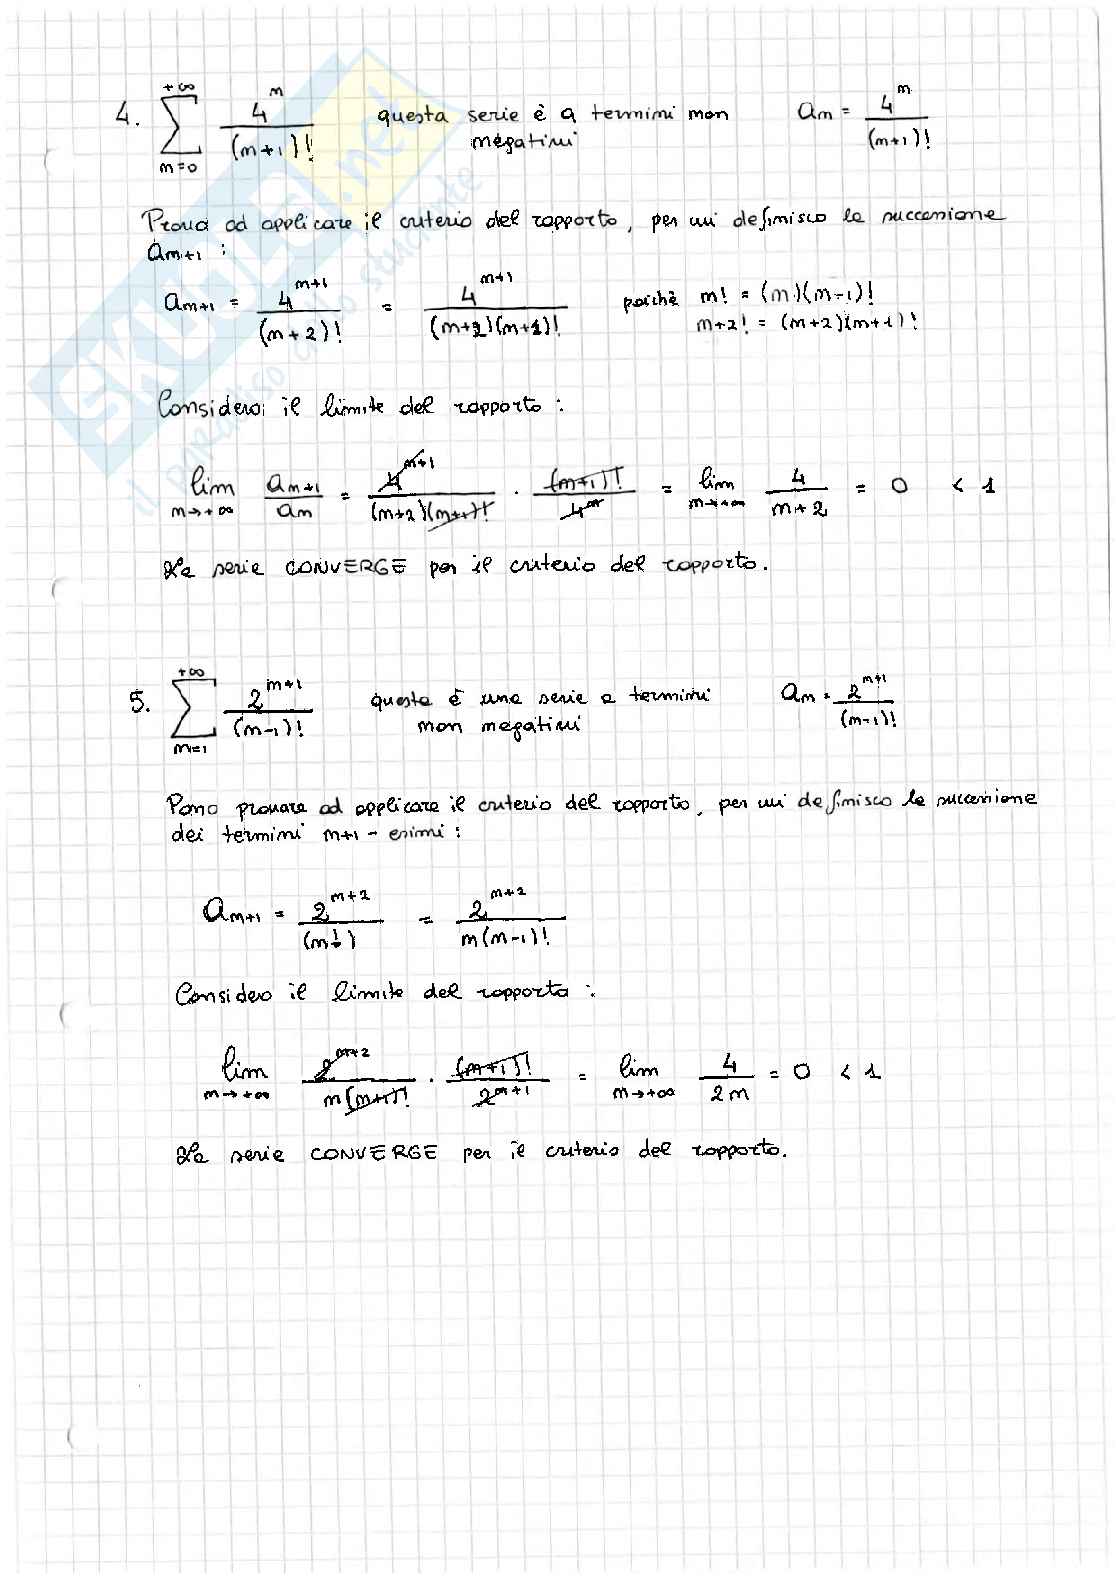 4. \sum_{n=0}^{+\infty} \frac{4^n}{(n+1)!} questa serie è a termini non negativi a_n = \frac{4^n}{(n+1)!}
Provo ad applicare il criterio del rapporto, per cui definisco la successione
a_{n+1} :
a_{n+1} = \frac{4^{n+1}}{(n+2)!} = \frac{4^{n+1}}{(n+2)(n+1)!} poiché n! = (n)(n-1)!
n+2! = (n+2)(n+1)!
Considero il limite del rapporto :
\lim_{n→+∞} \frac{a_{n+1}}{a_n} = \frac{4^{n+1}}{(n+2)(n+1)!} · \frac{(n+1)!}{4^n} = \lim_{n→+∞} \frac{4}{n+2} = 0 < 1
La serie CONVERGE per il criterio del rapporto.
5. \sum_{n=1}^{+\infty} \frac{2^{n+1}}{(n-1)!} questa è una serie a termini non negativi a_n = \frac{2^{n+1}}{(n-1)!}
Posso provare ad applicare il criterio del rapporto, per cui definisco la successione
dei termini n+1 - esimi :
a_{n+1} = \frac{2^{n+2}}{(n!)} = \frac{2^{n+2}}{n(n-1)!}
Considero il limite del rapporto :
\lim_{n→+∞} \frac{2^{n+2}}{n(n+1)!} · \frac{(n+1)!}{2^{n+1}} = \lim_{n→+∞} \frac{4}{2n} = 0 < 1
La serie CONVERGE per il criterio del rapporto.
SKUOLA.net
il paradiso dello studente